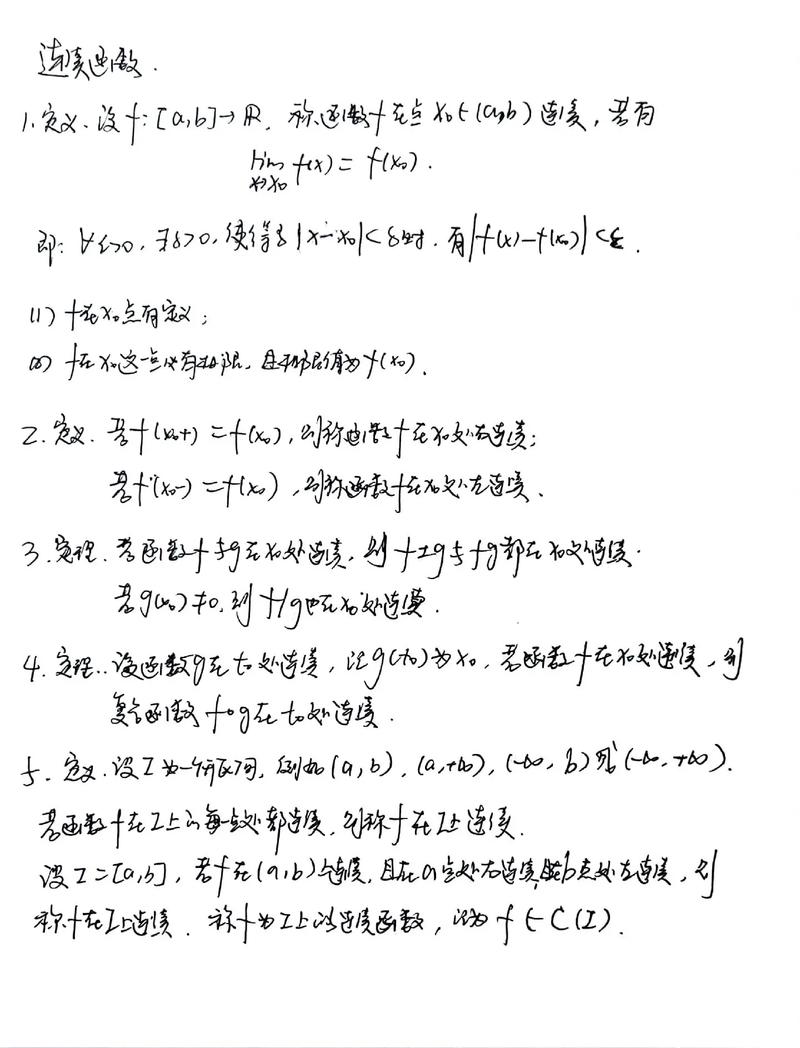 连续函数.
1. 定义. 设 f: [a,b]→ℝ, 称函数 f 在点 x₀∈(a,b) 连续, 若有
lim x→x₀ f(x) = f(x₀).
即: ∀ε>0, ∃δ>0, 使得当 |x-x₀|<δ时, 有|f(x)-f(x₀)|<ε.
(1) f在x₀点有定义;
(2) f在x₀这一点必有极限, 且极限值为f(x₀).
2. 定义. 若f(x₀+) = f(x₀), 则称函数f在x₀处右连续;
若f(x₀-) = f(x₀), 则称函数f在x₀处左连续.
3. 定理. 若函数f与g在x₀处连续, 则 f±g与fg都在x₀处连续.
若g(x₀)≠0, 则 f/g也在x₀处连续.
4. 定理.. 设函数g在t₀处连续, 记g(t₀)为x₀, 若函数f在x₀处连续, 则
复合函数 f∘g在t₀处连续.
5. 定义. 设I为一个开区间, 例如(a,b), (a,+∞), (-∞, b)或(-∞,+∞).
若函数f在I上的每一点处都连续, 则称f在I上连续.
设 I=[a,b], 若f在(a,b)上连续, 且在a点处右连续,在b点处左连续, 则
称f在I上连续. 称f为I上的连续函数, 记为 f∈C(I).